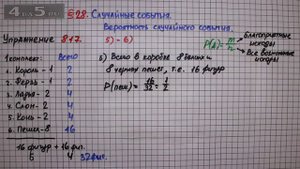 4 ДЗ 5
§28. Случайные события.
Вероятность случайного события.
Упражнение 817. 5)-6)
P(A) = m/n
Благоприятные исходы
Все возможные исходы
1 комплект: Всего
1. Король - 1 2
2. Ферзь - 1 2
3. Ладья - 2 4
4. Слон - 2 4
5. Конь - 2 4
6. Пешка - 8 16
16 фигур + 16 фиг.
Б Ч 32 фиг.
5) Всего в коробке 8 белых и
8 черных пешек, т.е. 16 фигур
P(пеш) = 16/32 = 1/2